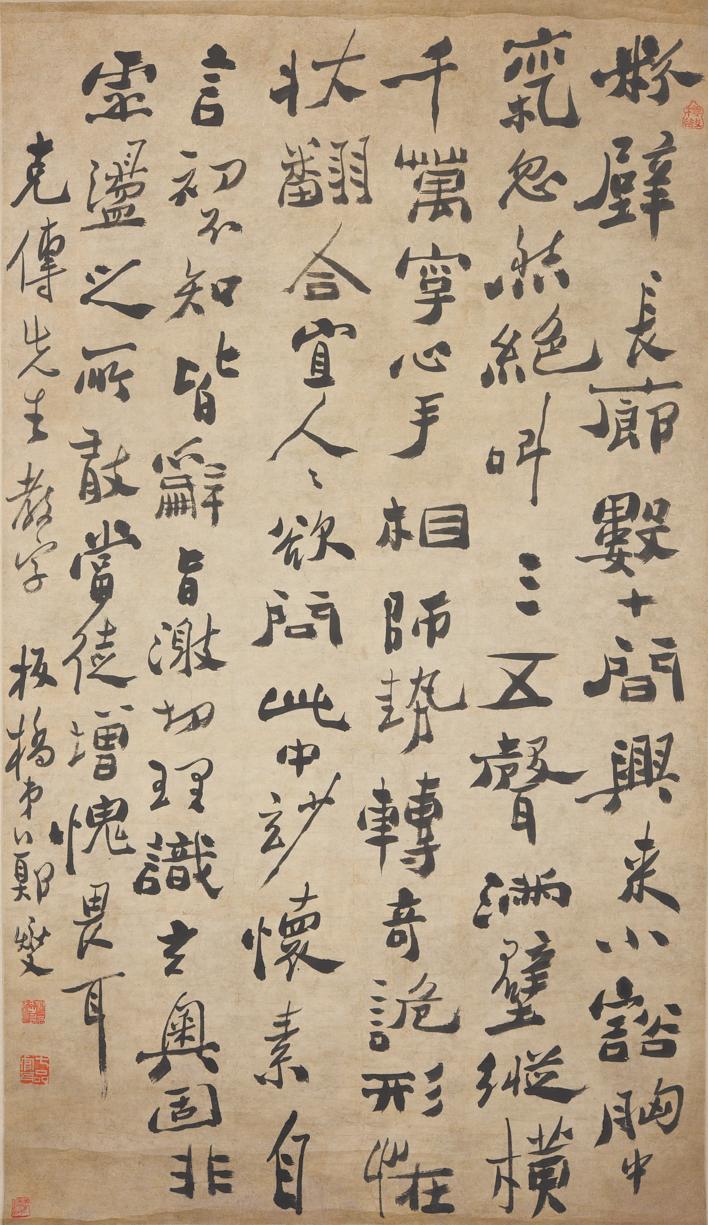 粉壁長廊數十間興来小豁胸中
氣忽然絕叫三五聲滿壁縱橫
千萬字心手相師勢轉奇詭形恠
狀翻合宜人〻欲問此中玅懷素自
言初不知皆辭旨激切理識玄奧固非
虛盪之所敢當徒增愧畏耳
克傳先生教字 板橋弟鄭燮